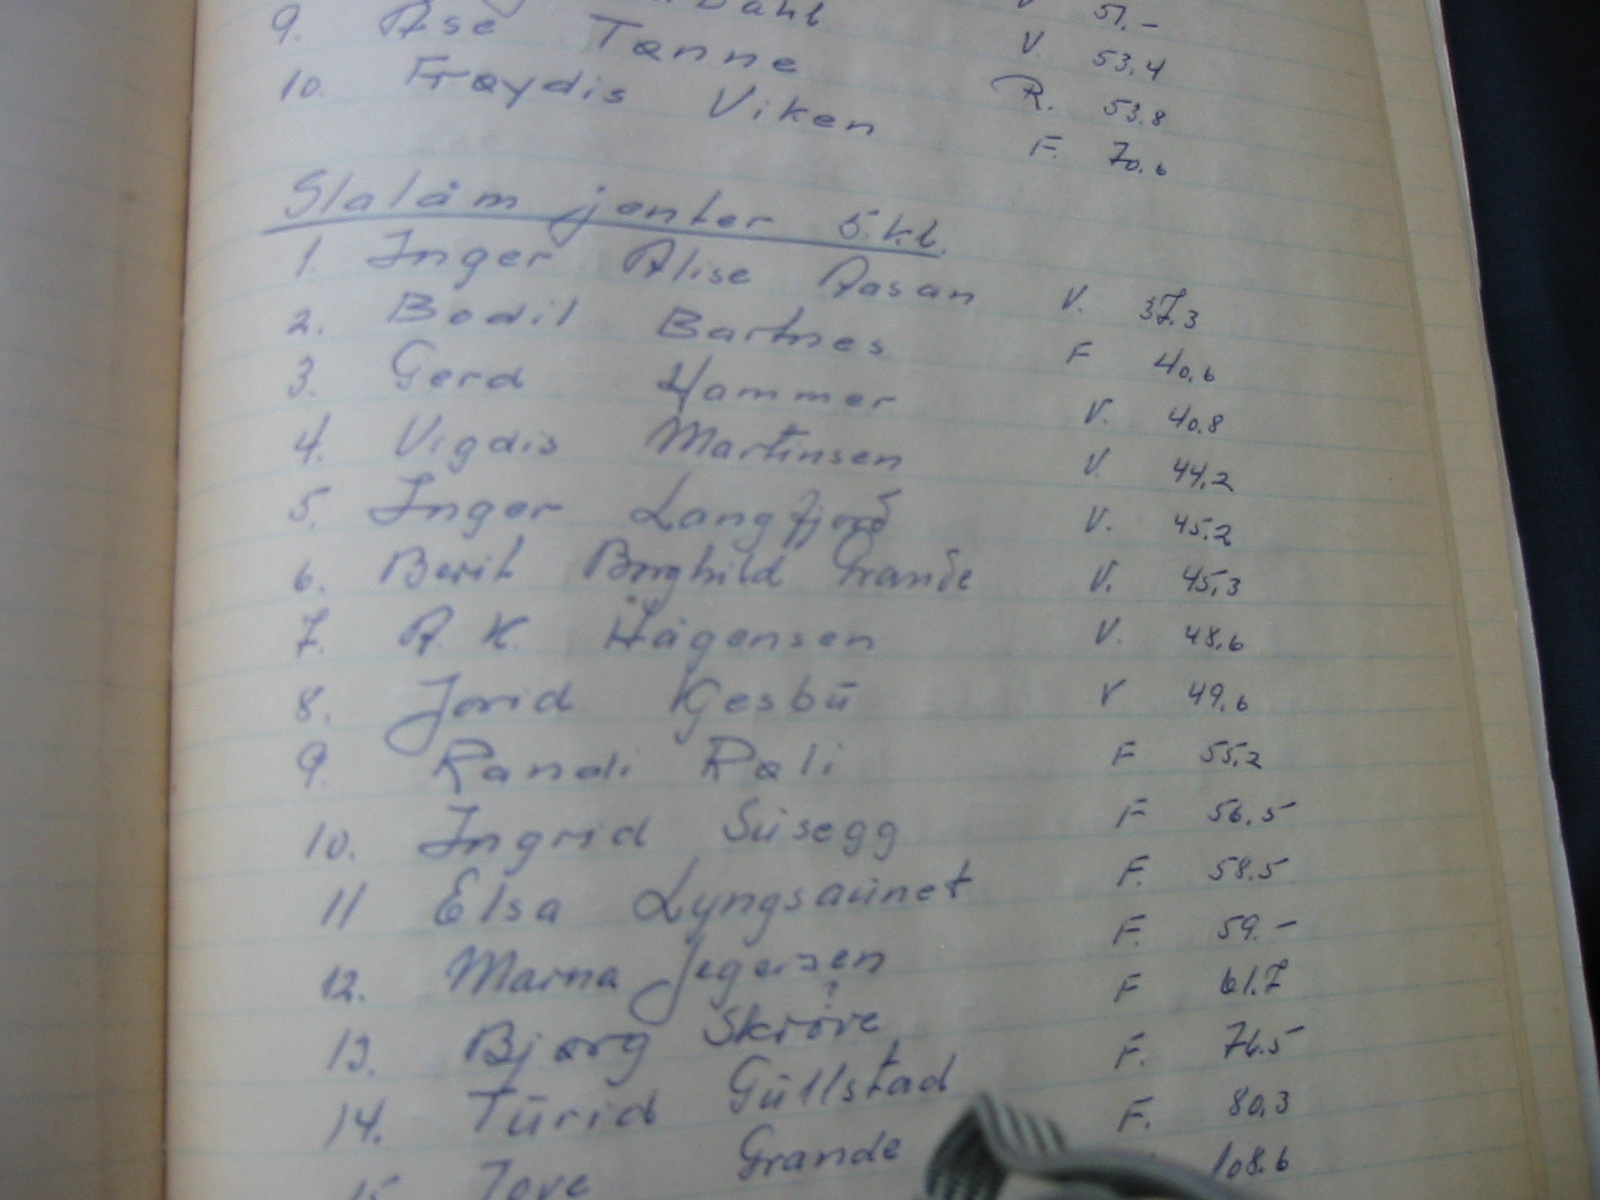 Dahl V 51.-
9. Åse Tønne V. 53,4
10. Frøydis Viken R. 53.8
F. 70.6
Slalåm jenter 5.kl.
1. Inger Alise Aasan V. 37.3
2. Bodil Bartnes F 40,6
3. Gerd Hammer V. 40.8
4. Vigdis Martinsen V. 44,2
5. Inger Langfjord V. 45.2
6. Berit Borghild Grande V. 45,3
7. A. K. Hågensen V. 48,6
8. Jorid Kjesbu V 49,6
9. Randi Røli F 55,2
10. Ingrid Susegg F 56,5
11 Elsa Lyngsaunet F. 58.5
12. Marna Jegersen F. 59.-
13. Bjørg F 61.7
14. Turid Gullstad F. 76.5
15 Tove Grande F. 80,3
108.6